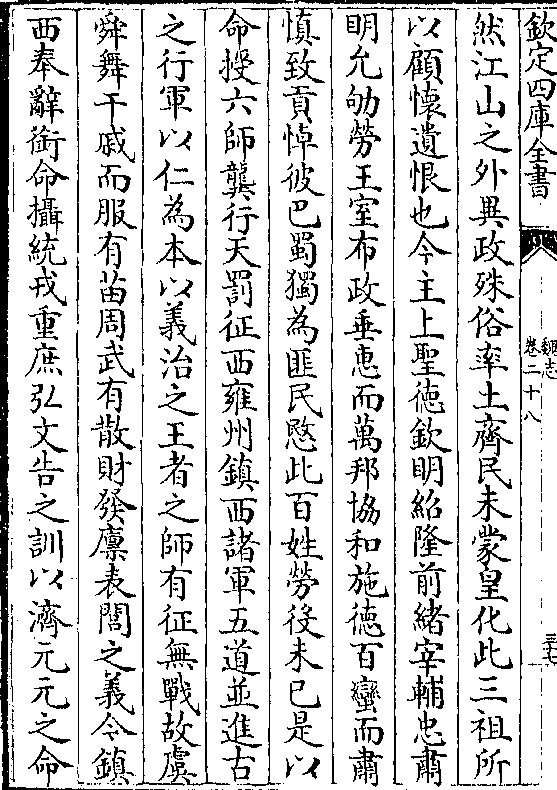 欽定四庫全書
魏志
卷二十八
然江山之外異政殊俗率土齊民未蒙皇化此三祖所
以顧懷遺恨也今主上聖徳欽明紹隆前緒宰輔忠肅
明允劬勞王室布政垂恵而萬邦協和施徳百蠻而肅
慎致貢悼彼巴蜀獨為匪民愍此百姓勞役未已是以
命授六師龔行天罰征西雍州鎮西諸軍五道並進古
之行軍以仁為本以義治之王者之師有征無戰故虞
舜舞干戚而服有苗周武有散財發廩表閭之義今鎮
西奉辭銜命攝統戎重庶弘文告之訓以濟元元之命